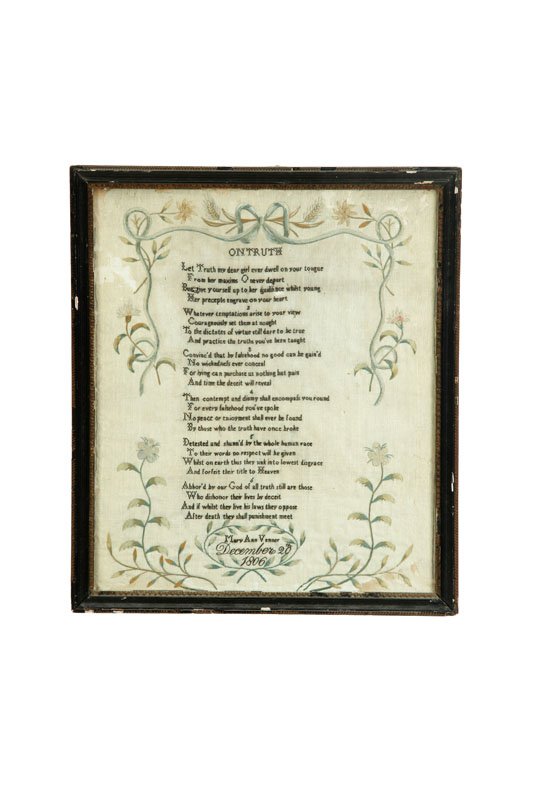 ON TRUTH
Let Truth my dear girl ever dwell on your tongue
From her maxims O never depart
But give yourself up to her guidance whilst young
Her precepts engrave on your heart
2
Whatever temptations arise to your view
Courageously set them at nought
To the dictates of virtue still dare to be true
And practice the truths you've been taught
3
Convinc'd that by falsehood no good can be gain'd
No wickedness ever conceal
For lying can purchase us nothing but pain
And time the deceit will reveal
4
Then contempt and dismay shall encompass you round
For every falsehood you've spoke
No peace or enjoyment shall ever be found
By those who the truth have once broke
5
Detested and shunn'd by the whole human race
To their words no respect will be given
Whilst on earth thus they sink into lowest disgrace
And forfeit their title to Heaven
6
Abhor'd by our God of all truth still are those
Who dishonor their lives by deceit
And if whilst they live his laws they oppose
After death they shall punishment meet
Mary Ann Venner
December 20
1806